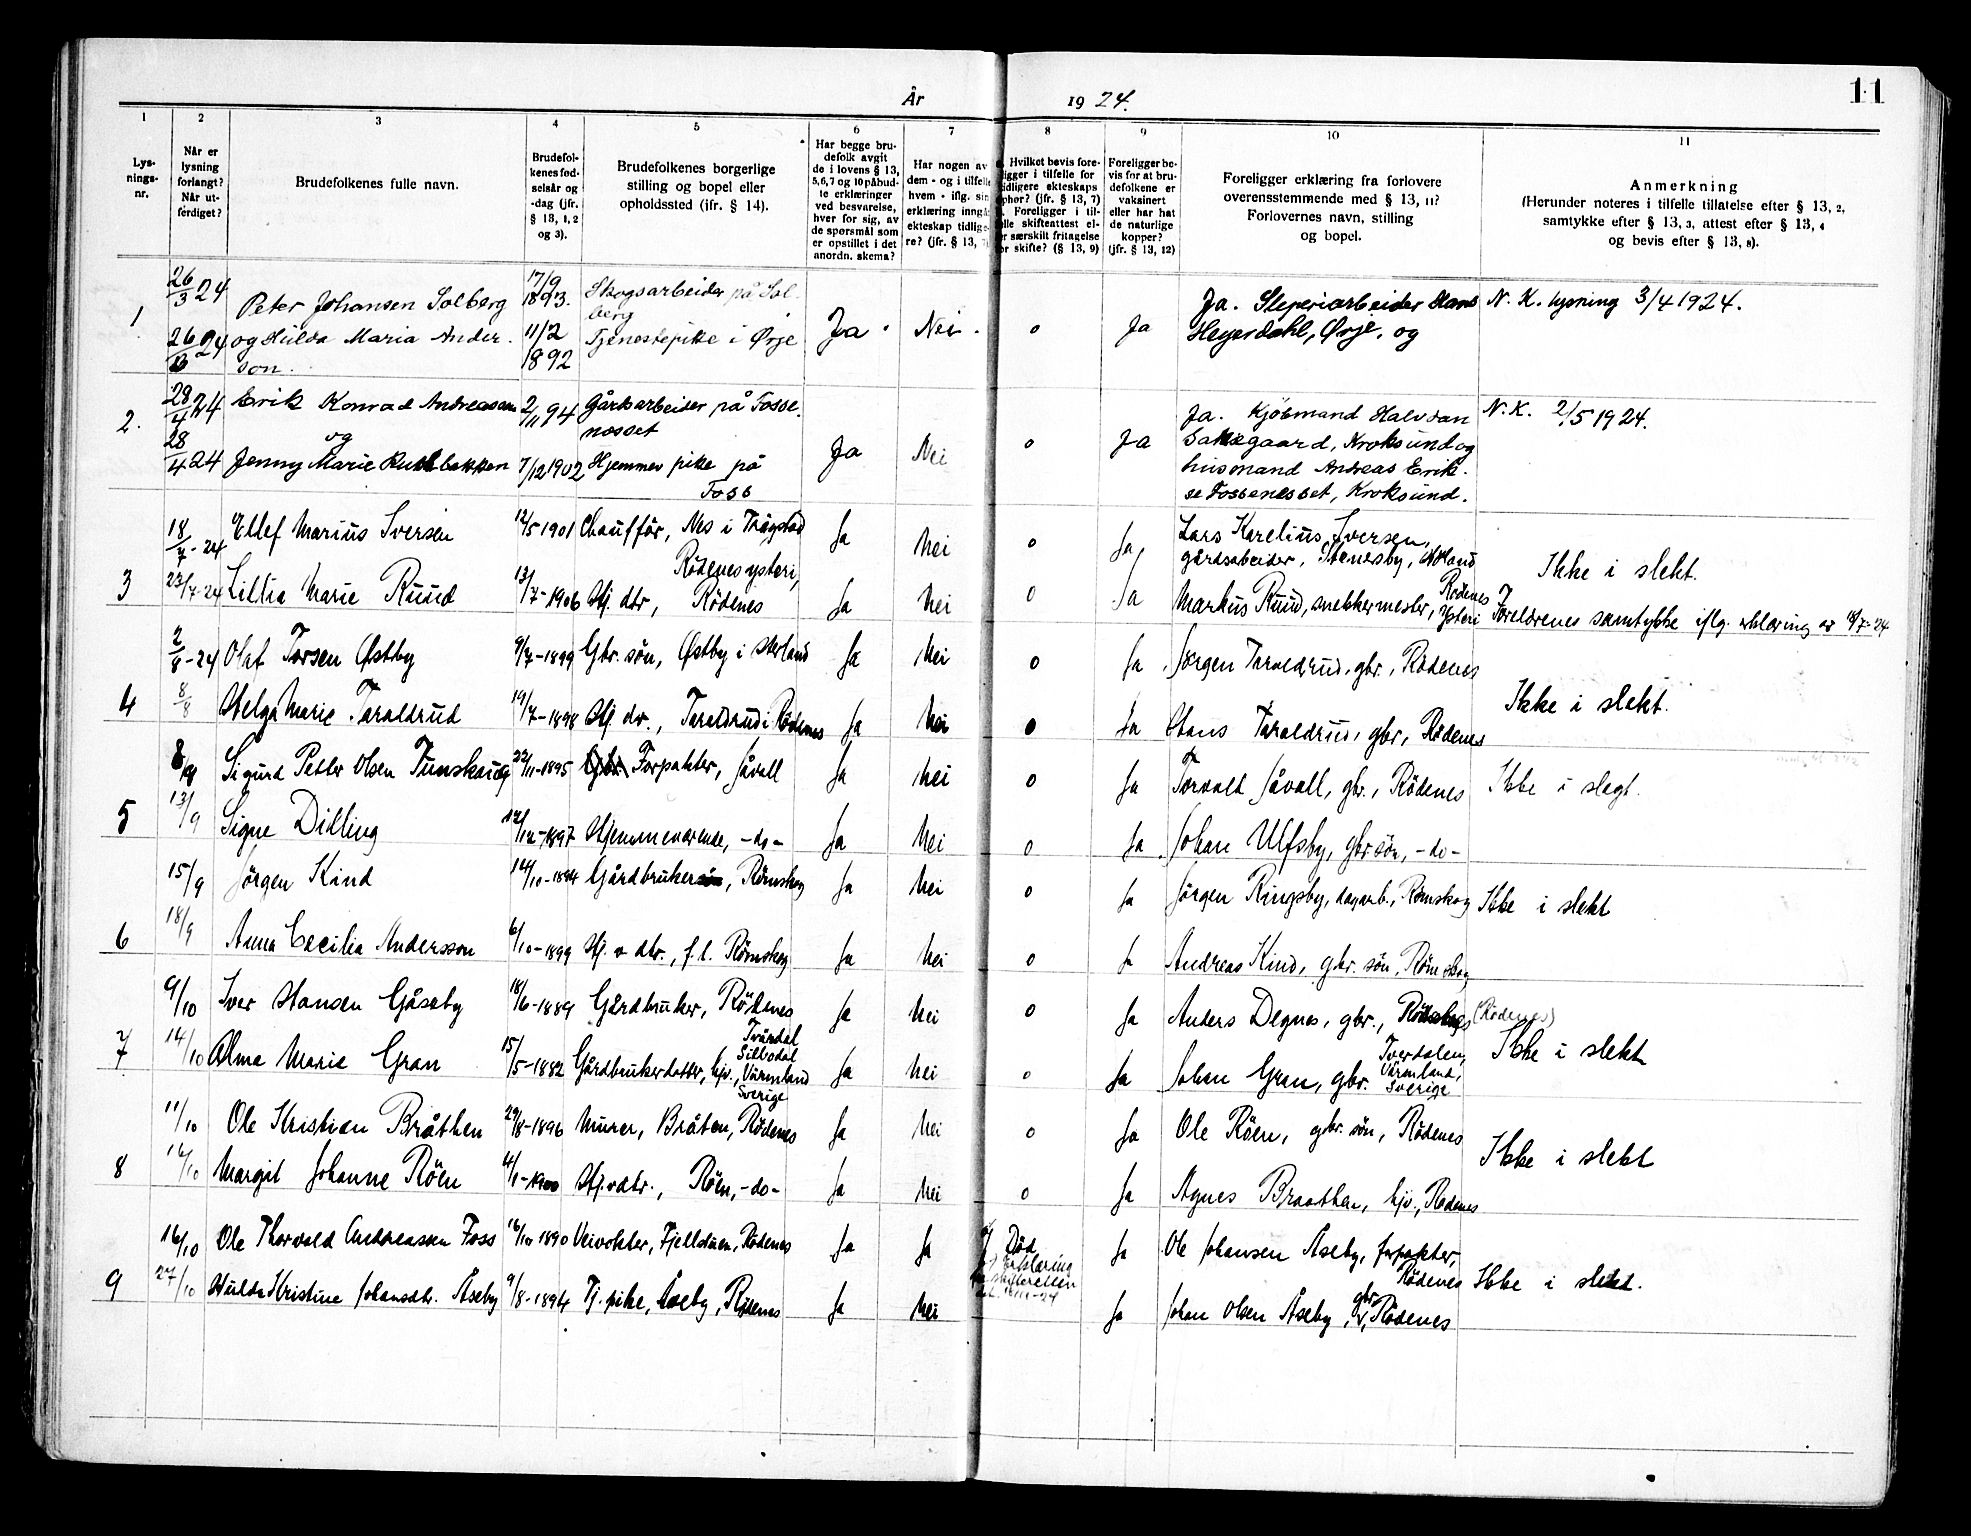 11
År 1924.
1
2
3
4
5
6
7
8
9
10
11
Lys-
nings-
nr.
Når er
lysning
forlangt?
Når ut-
ferdiget?
Brudefolkenes fulle navn.
Brudefol-
kenes fød-
selsår og
-dag (jfr.
§ 13, 1, 2
og 3).
Brudefolkenes borgerlige
stilling og bopel eller
opholdssted (jfr. § 14).
Har begge bru-
defolk avgit
de i lovens § 13,
5, 6, 7 og 10 påbud-
te erklæringer
ved besvarelse,
hver for sig, av
de spørsmål som
er opstillet i det
anordn. skema?
Har nogen av
dem - og i tilfelle
hvem - iflg. sin
erklæring inngått
ekteskap tidlige-
re? (jfr. § 13, 7)
Hvilket bevis fore-
ligger i tilfelle for
tidligere ekteskaps
ophør? (jfr. § 13, 7)
Foreligger i til-
felle skifteattest el-
ler særskilt fritagelse
for skifte? (§ 13, 9)
Foreligger be-
vis for at bru-
defolkene er
vaksinert
eller har hat
de naturlige
kopper?
(jfr. § 13, 12)
Foreligger erklæring fra forlovere
overensstemmende med § 13, 11?
Forlovernes navn, stilling
og bopel.
Anmerkning
(Herunder noteres i tilfelle tillatelse efter § 13, 2,
samtykke efter § 13, 3, attest efter § 13, 4
og bevis efter § 13, 8).
1 26/3 24 Peter Johansen Solberg 17/9 1893. Skogsarbeider på Sol-
berg Ja Nei o Ja Ja. Sliperiarbeider Hans N. K. lysning 3/4 1924.
26/3 24 og Hulda Maria Ander- 11/2 1892 Tjenestepike i Ørje Heyerdahl, Ørje, og
son.
2. 28/4 24 Erik Konrad Andreasen 2/11 94 Gårdsarbeider på Fosse- Ja. Kjøbmand Halvdan N. K. 2/5 1924.
og nesset Ja Nei o Ja Kroksund og
28/4 24 Jenny Marie Rudbakken 7/12 1902 Hjemmev pike på husmand Andreas Erik-
Foss se Fossenesset, Kroksund.
18/7-24 Ellef Marius Iversen 12/5 1901 Chauffør, Nes i Trøgstad Ja Nei o Ja, Lars Karelius Iversen,
gårdsarbeider, Stenersby,
Ikke i slekt.
3 23/7-24 Lillia Marie Ruud 13/7-1906 Hj. dtr, Rödenes ysteri, Rödenes Ja Nei o Ja Markus Ruud, mekkermester, Rödenes Ysteri
Foreldrenes samtykke iflg. erklæring av 18/7-24
2/8-24 Olaf Torsen Østby 9/7-1899 Gbr. søn, Østby i Ja Nei o Ja Jørgen Taraldrud, gbr., Rödenes
4 8/8 Helga Marie Taraldrud 19/7-1898 Hj. dv., Taraldrud i Rödenes Ja Nei o Ja Hans Taraldrud, gbr, Rödenes
Ikke i slekt.
8/9 Sigurd Petter Olsen Tunskaug 22/11-1895 Forpakter, Jåvall Ja Nei o Ja Torvald Jåvall, gbr., Rödenes Ikke i slegt.
5 13/9 Signe Dilling 12/12-1897 Hjemmeværende, -do- Ja Nei o Ja Johan Ulfsby, gbr søn, -do-
15/9 Jörgen Kind 14/10-1894 Gårdbruker, Rømskog Ja Nei o Ja Jørgen Ringsby, dagarb., Rømskog Ikke i slekt
6 18/9 Anna Cecilia Andersson 6/10-1899 Hj. v dtr., f. l. Rømskog Ja Nei o Ja Andreas Kind, gbr. søn, Rømskog
9/10 Iver Hansen Gåseby 18/6-1889 Gårdbruker, Rödenes Ja Nei o Ja Anders Degnes, gbr., (Rödenes)
7 14/10 Alma Marie Gran 15/5-1882 Gårdbrukerdatter, hjv., Tvärdal Silbodal Värmland Sverige Ja Nei o Ja Johan Gran, gbr. Tverdalen, Värmland, Sverige
Ikke i slekt
11/10 Ole Kristian Bråthen 29/8-1896 Murer, Bråten, Rödenes Ja Nei o Ja Ole Röen, gbr. søn, Rödenes
8 14/10 Margit Johanne Röen Hj.v dtr., Röen, -do- Ja Nei o Ja Agnes Braathen, hjv., Rødenes
Ikke i slekt
16/10 Ole Thorvald Andreassen Foss 16/10 1890 Veivokter, Rödenes Ja Ja Død Ja Ole Johansen Åseby, forpakter,
Rödenes Ikke i slekt.
Erklæring
skifteretten
9 27/10 Hulda Kristine Johansdtr. Åseby 9/8-1894 Tj. pike, Åseby, Rödenes Ja Nei Ja Johan Olsen Åseby, gbr, Rödenes